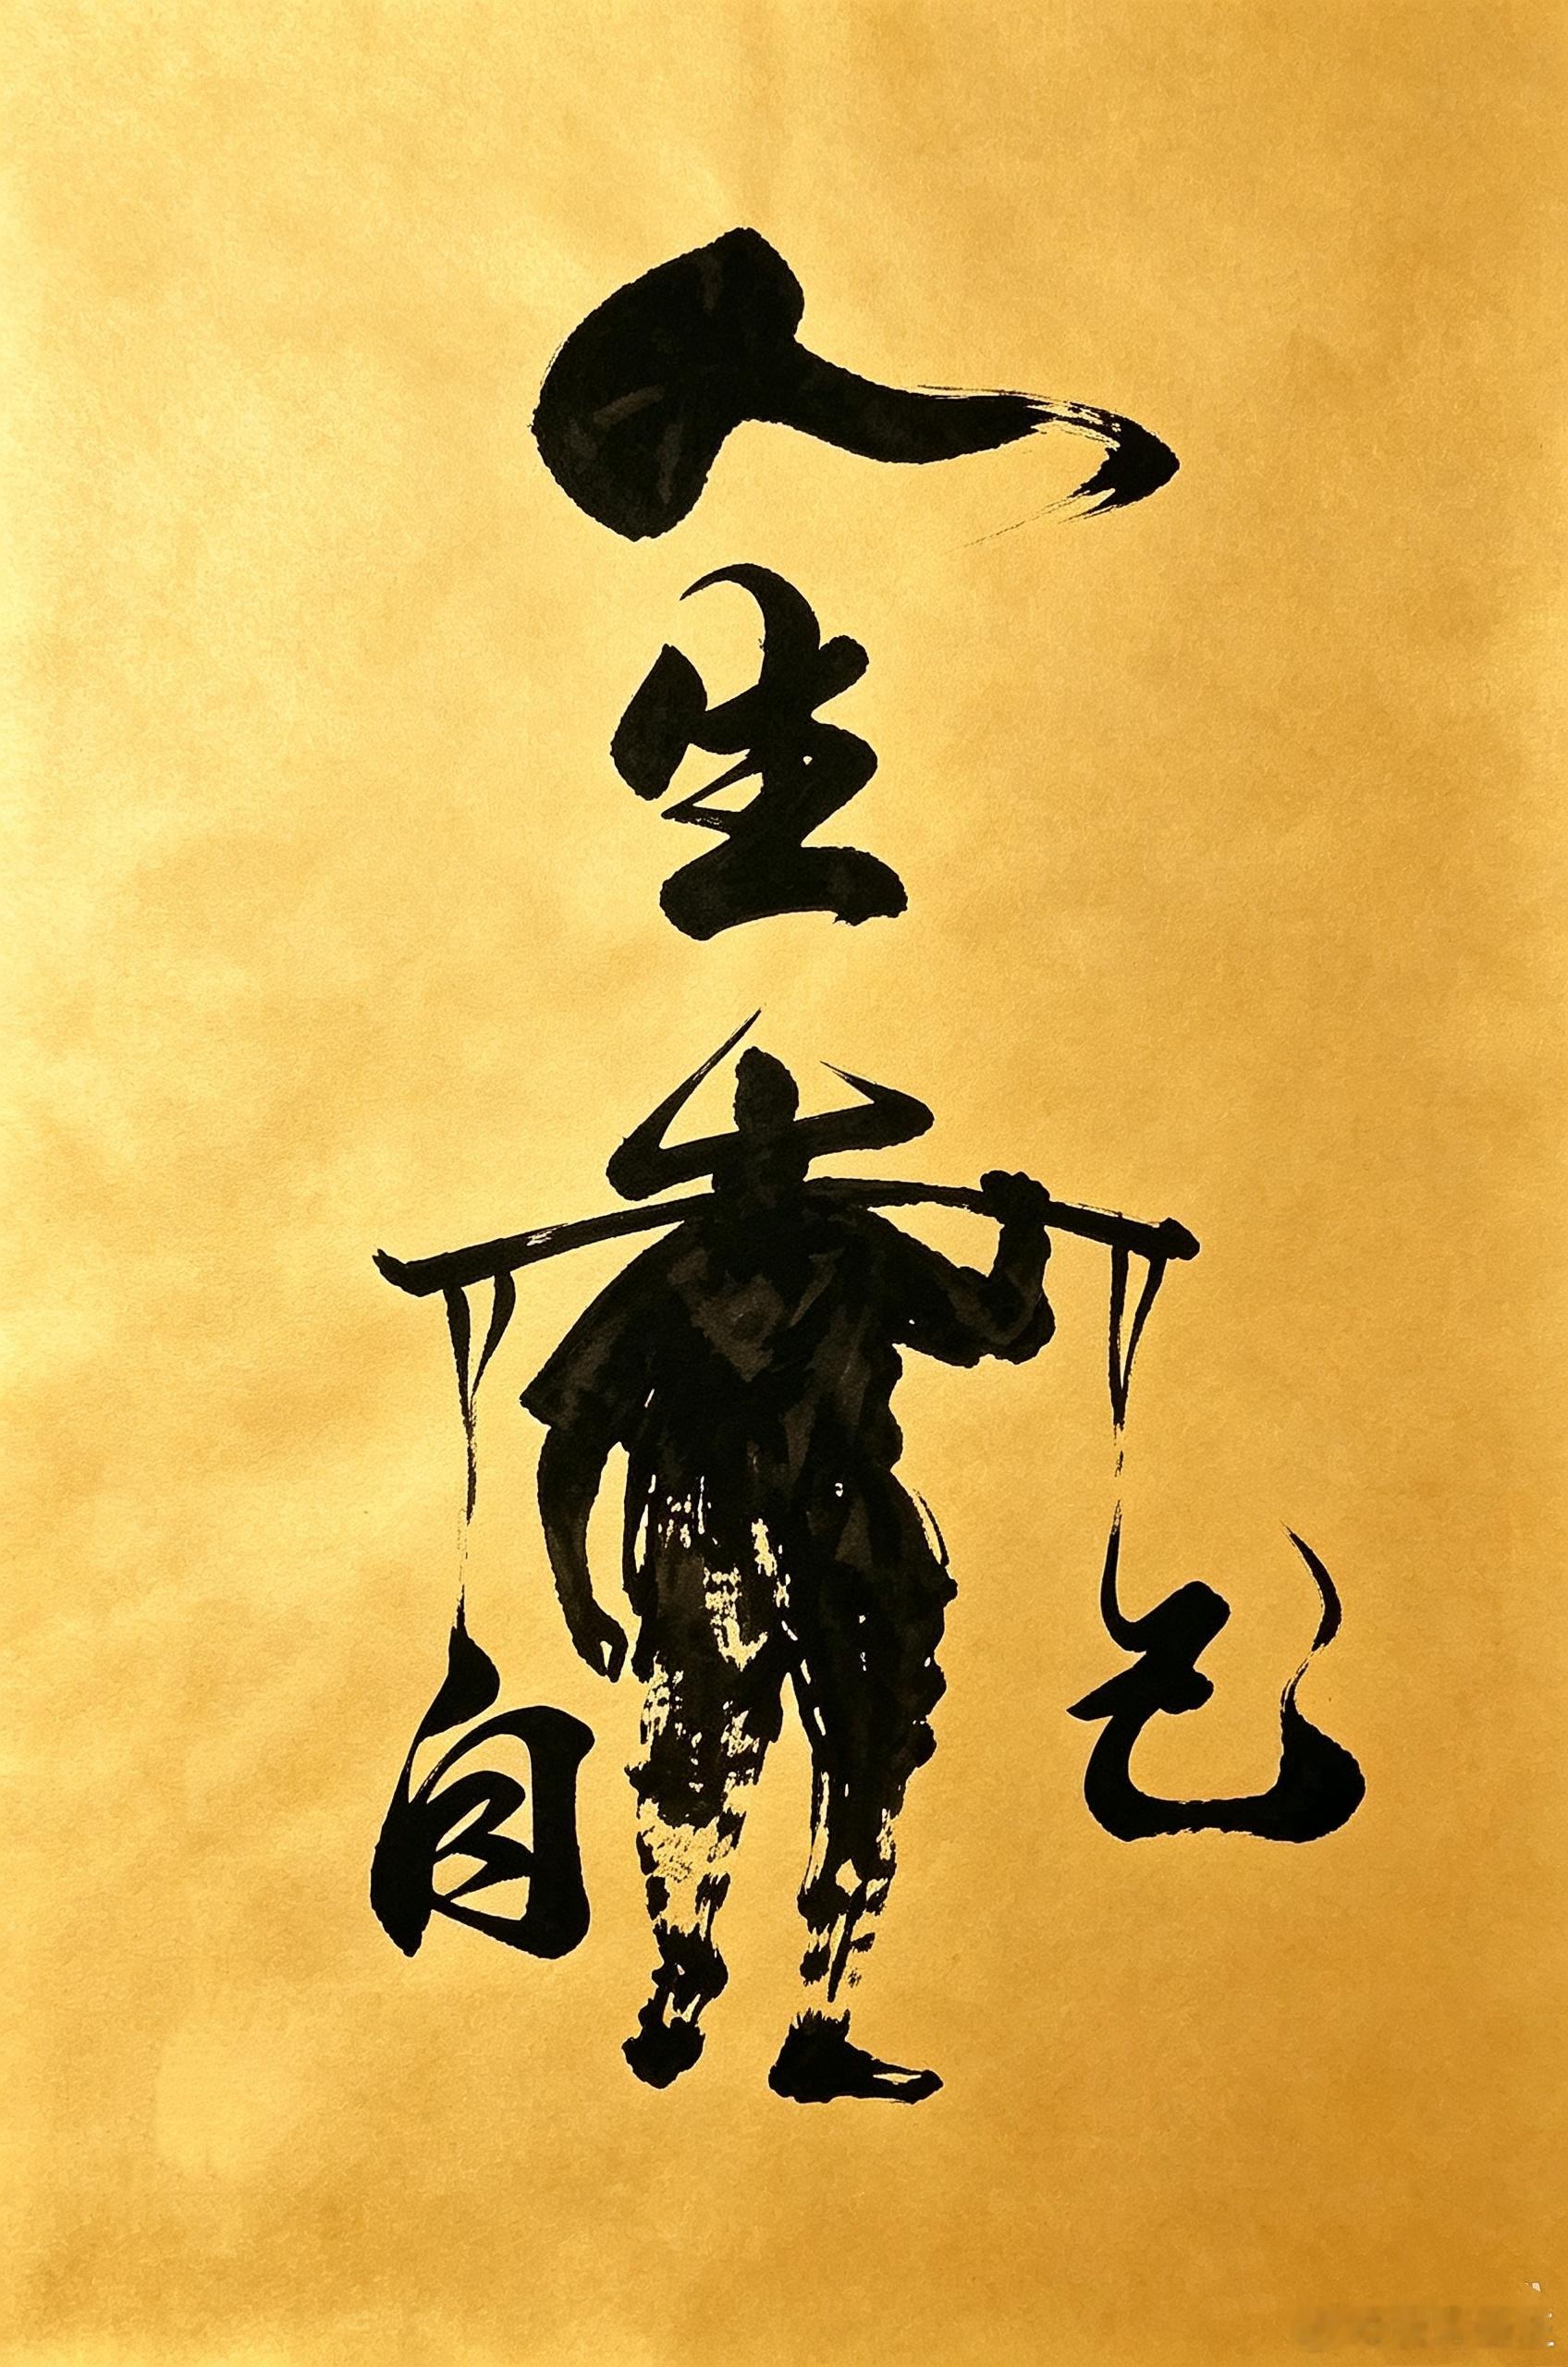 人生
自己